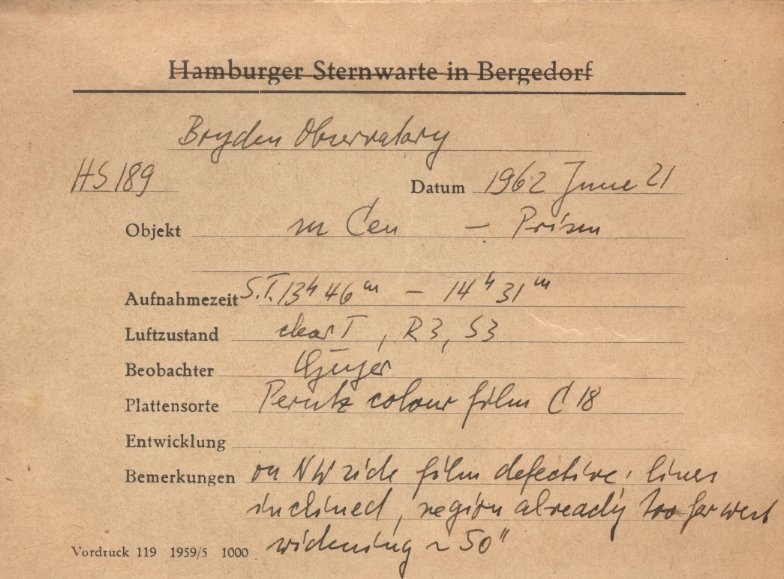 Hamburger Sternwarte in Bergedorf
Boyden Observatory
HS 189 Datum 1962 June 21
Objekt m Cen – Prism
Aufnahmezeit S.T. 13h 46m – 14h 31m
Luftzustand clear T, R3, S3
Beobachter
Plattensorte Perutz colour film C 18
Entwicklung
Bemerkungen on NW side film defective, lines
inclined, region already too far west
Vordruck 119 1959/5 1000 widening ~ 50"